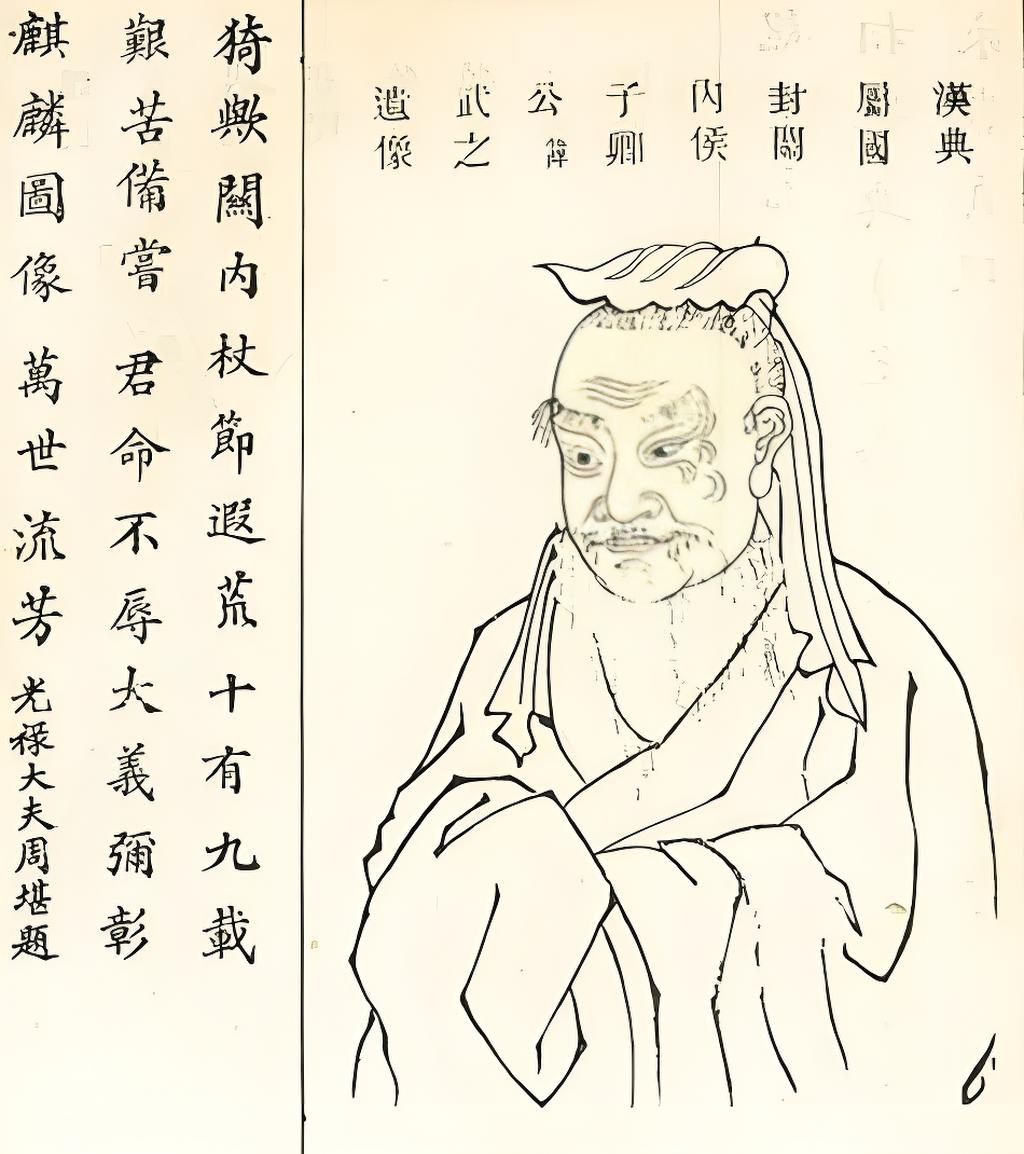 漢典
屬國
封關
内侯
子卿
公諱
武之
遺像
猗歟關内杖節遐荒十有九載
艱苦備嘗君命不辱大義彌彰
麒麟圖像萬世流芳光禄大夫周堪題